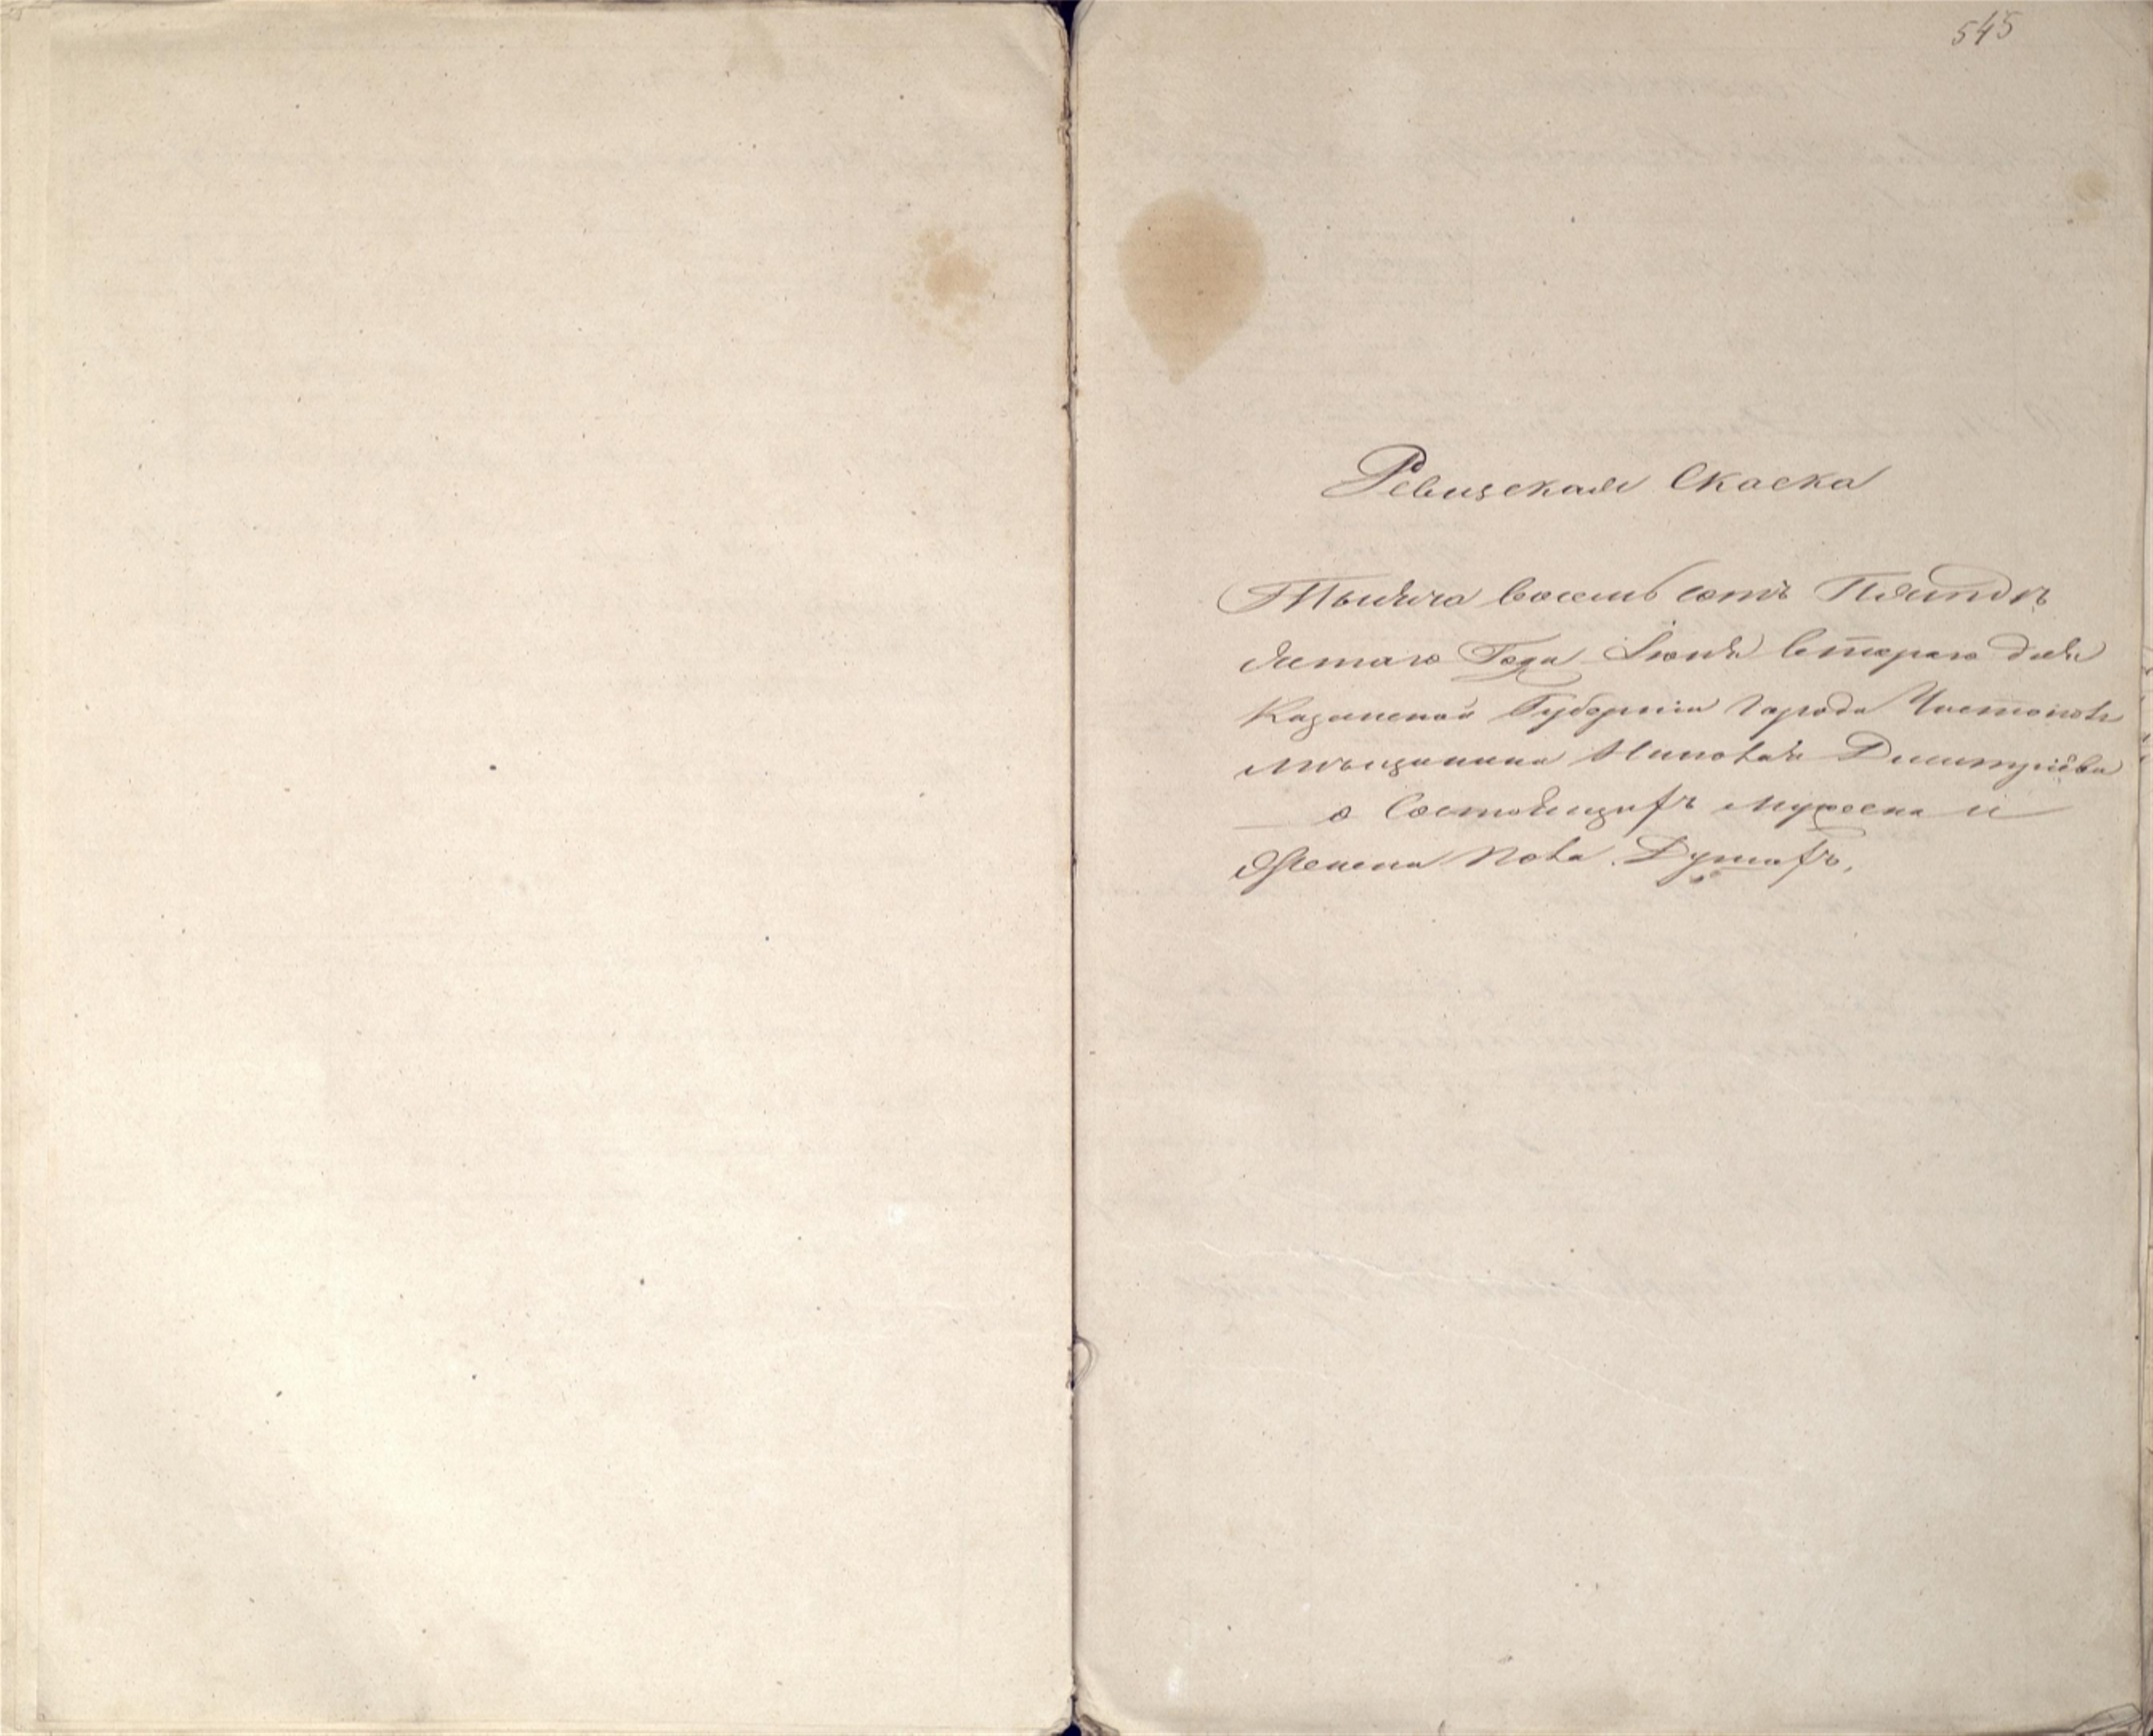 545
Ревизская Скаска
Тысяча восемь сотъ Пятидѣ
сятаго Года Іюня втораго дня
Казанской Губерніи Города Чистополя
мѣщанина Николая Дмитріева
о Состоящихъ мужеска и
Женска пола Душахъ,